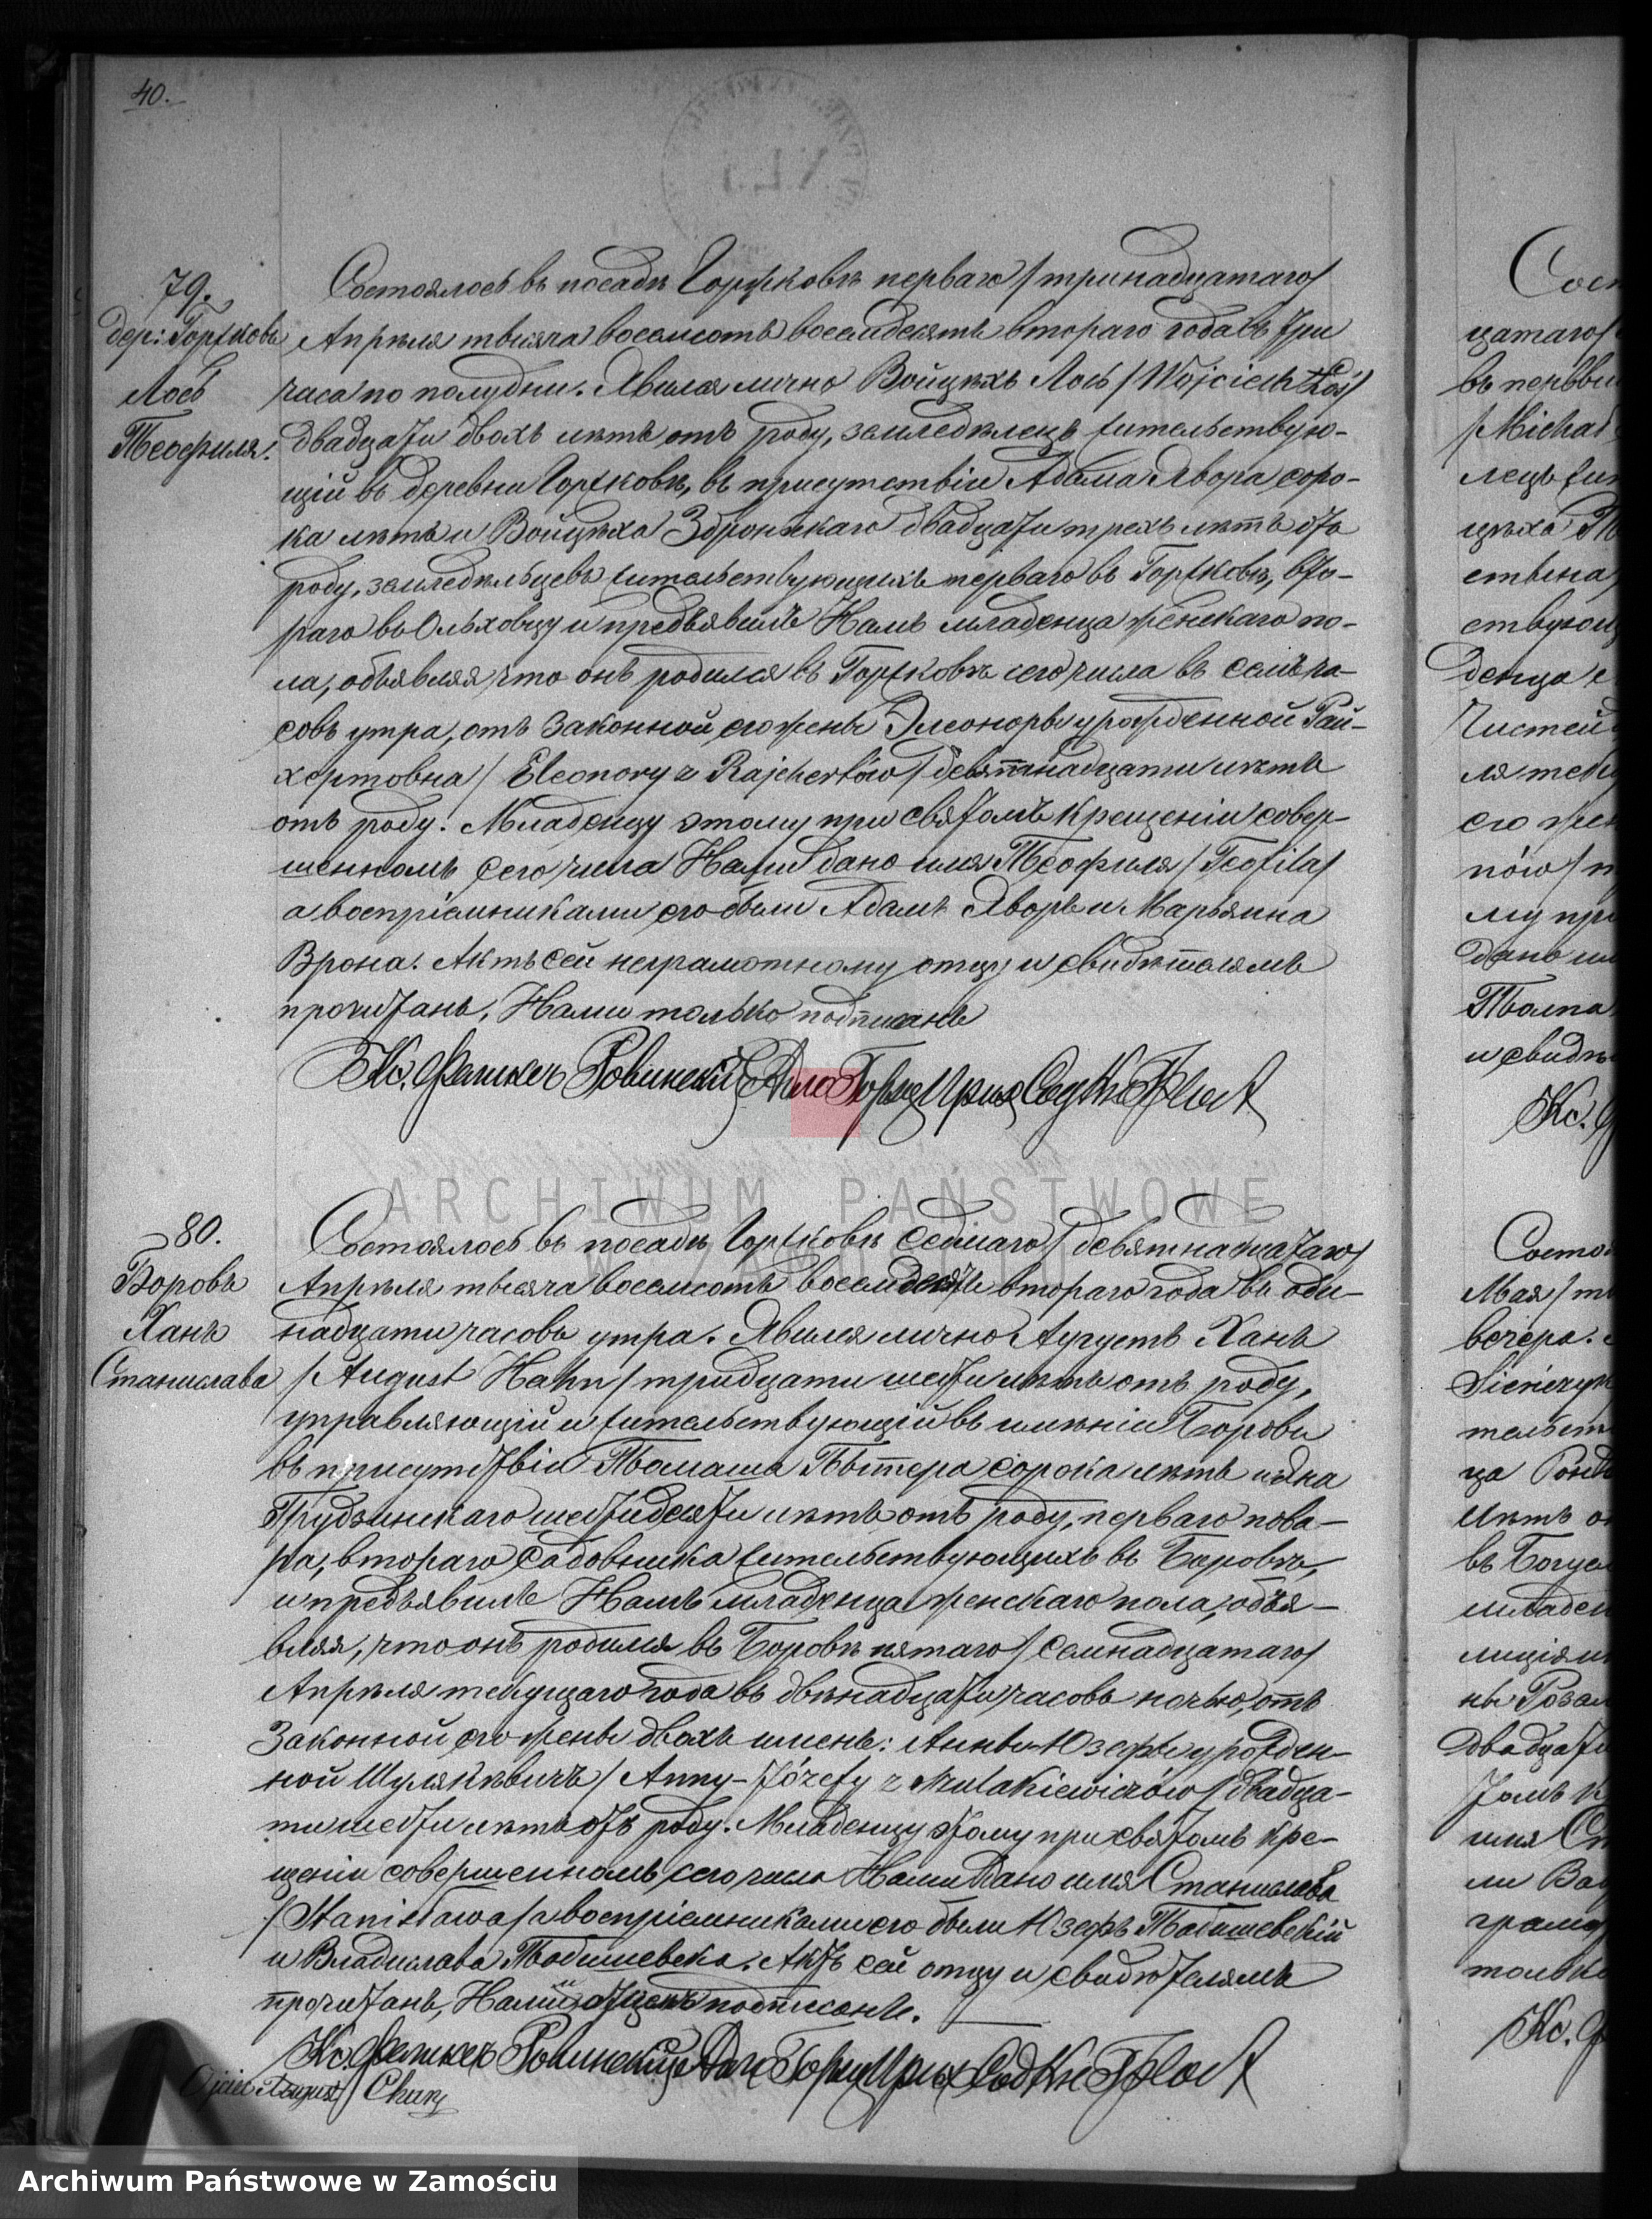 40.
79.
дер: Горжковъ
Лось
Теофиля.
Состоялось въ посадѣ Горжковѣ перваго /тринадцатаго/
Апрѣля тысяча восемсотъ восемдесятъ втораго года въ три
часа по полудни. Явился лично Войцѣхъ Лось /Wojciech Łoś/
двадцати двохъ лѣтъ отъ роду, земледѣлецъ жительствую-
щій въ деревни Горжковѣ, въ присутствіи Адама Явора соро-
ка лѣтъ и Войцѣха двадцати трехъ лѣтъ отъ
роду, земледѣльцевъ жительствующихъ перваго въ Горжковѣ, вто-
раго въ Ольховцу и предъявилъ Намъ младенца женскаго по-
ла, объявляя что онъ родился въ Горжковѣ сего числа въ семь ча-
совъ утра, отъ законной его жены Элеоноры урожденной Рай-
хертовна /Eleonory z Rajchertów/ девятнадцати лѣтъ
отъ роду. Младенцу этому при святомъ крещеніи совер-
шенномъ сего числа Нами дано имя Теофиля /Teofila/
а воспріемниками его были Адамъ Яворъ и Марьянна
Врона. Актъ сей неграмотному отцу и свидѣтелямъ
прочитанъ, Нами только подписанъ
Кс. Феликсъ Ровинскій
80.
Боровъ
Ханъ
Станислава
Состоялось въ посадѣ Горжковѣ седмаго /девятнадцатаго/
Апрѣля тысяча восемсотъ восемдесять втораго года въ оди-
надцати часовъ утра. Явился лично Аугустъ Ханъ
/August Hahn/ тридцати шести лѣтъ отъ роду,
управляющій и жительствующій въ имѣніи Борови
въ присутствіи Томаша сорока лѣтъ и Яна
Грудзинскаго шестидесяти лѣтъ отъ роду, перваго пова-
ра, втораго садовника жительствующихъ въ Боровѣ,
и предъявилъ Намъ младенца женскаго пола, объя-
вляя, что онъ родился въ Боровѣ пятаго /семнадцатаго/
Апрѣля текущаго года въ двѣнадцати часовъ ночью, отъ
законной его жены двохъ именъ: Анны-Юзефы урожден-
ной Шулякѣвичъ /Anny-Józefy z Szulakiewiczów/ двадца-
ти шести лѣтъ отъ роду. Младенцу этому при святомъ кре-
щеніи совершенномъ сего числа Нами дано имя Станислава
/Stanisława/ а воспріемниками его были Юзефъ
и Владислава Актъ сей отцу и свидѣтелямъ
прочитанъ, Нами и отцемъ подписанъ.
Кс. Феликсъ Ровинскій
Ojciec August
Сос
цатаго/
въ первы
/Michał
лецъ жи
цѣха
ствена
ствующ
денца
Чистей
ля теку
его жен
nów/
му при
дано им
и свидѣ
Кс. Ф
Состо
Мая /т
вечера.
тельст
ца
лѣтъ о
въ
младен
двадца
томъ к
имя Ст
ли
грамо
только
Кс. Ф
ARCHIWUM PAŃSTWOWE
W ZAMOŚCIU
Archiwum Państwowe w Zamościu